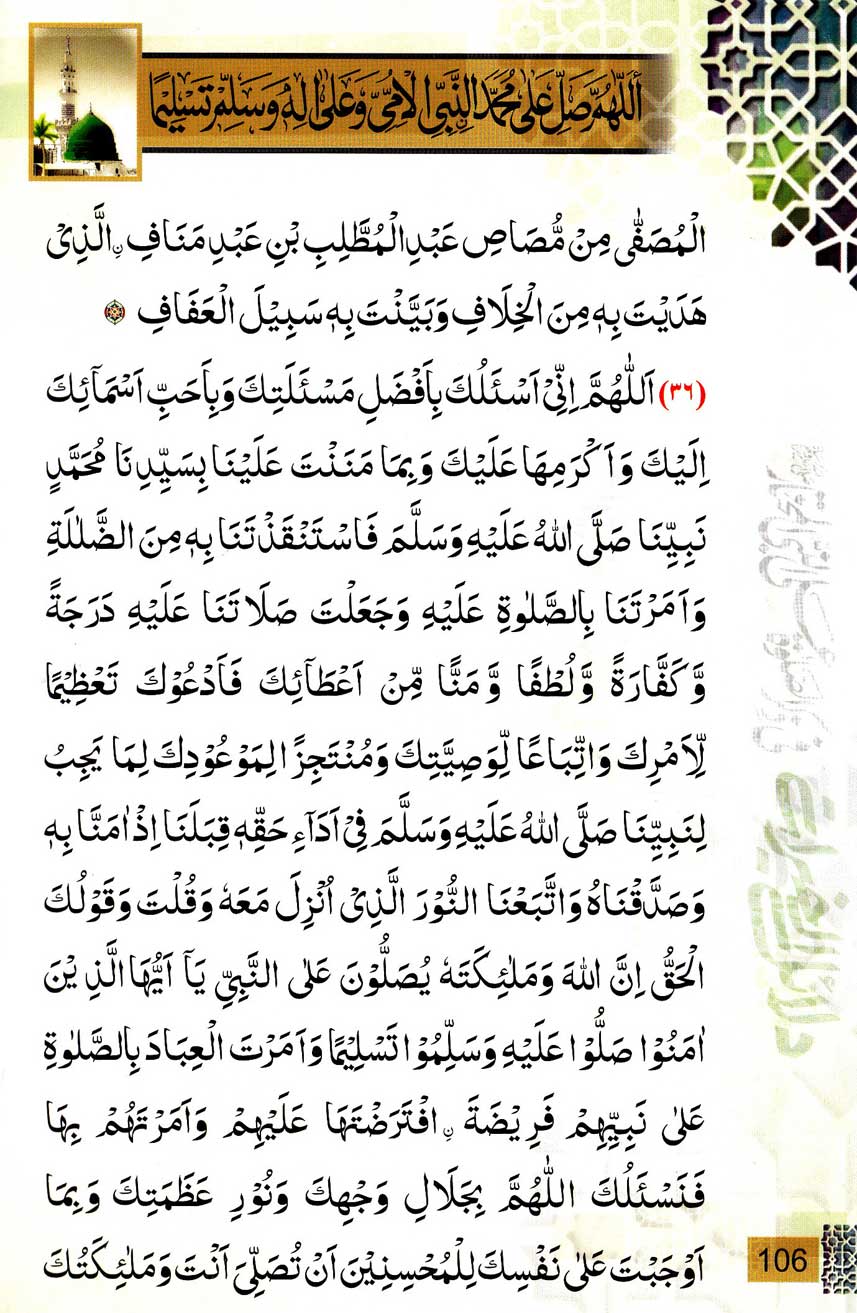 اَللّٰهُمَّ صَلِّ عَلٰى مُحَمَّدِ النَّبِيِّ الْاُمِّيِّ وَعَلٰى اٰلِهٖ وَسَلِّمْ تَسْلِيْمًا
الْمُصَفّٰى مِنْ مُّصَاصِ عَبْدِ الْمُطَّلِبِ بْنِ عَبْدِ مَنَافِ ۨ الَّذِىْ
هَدَيْتَ بِهٖ مِنَ الْخِلَافِ وَبَيَّنْتَ بِهٖ سَبِيْلَ الْعَفَافِ
(٣٦) اَللّٰهُمَّ اِنِّىْ اَسْئَلُكَ بِاَفْضَلِ مَسْئَلَتِكَ وَبِاَحَبِّ اَسْمَآئِكَ
اِلَيْكَ وَاَكْرَمِهَا عَلَيْكَ وَبِمَا مَنَنْتَ عَلَيْنَا بِسَيِّدِنَا مُحَمَّدٍ
نَبِيِّنَا صَلَّى اللهُ عَلَيْهِ وَسَلَّمَ فَاسْتَنْقَذْتَنَا بِهٖ مِنَ الضَّلٰلَةِ
وَاَمَرْتَنَا بِالصَّلٰوةِ عَلَيْهِ وَجَعَلْتَ صَلَاتَنَا عَلَيْهِ دَرَجَةً
وَّكَفَّارَةً وَّلُطْفًا وَّمَنًّا مِّنْ اَعْطَآئِكَ فَاَدْعُوْكَ تَعْظِيْمًا
لِّاَمْرِكَ وَاتِّبَاعًا لِّوَصِيَّتِكَ وَمُنْتَجِزًا لِمَوْعُوْدِكَ لِمَا يَجِبُ
لِنَبِيِّنَا صَلَّى اللهُ عَلَيْهِ وَسَلَّمَ فِىْ اَدَآءِ حَقِّهٖ قِبَلَنَا اِذْ اٰمَنَّا بِهٖ
وَصَدَّقْنَاهُ وَاتَّبَعْنَا النُّوْرَ الَّذِىْ اُنْزِلَ مَعَهٗ وَقُلْتَ وَقَوْلُكَ
الْحَقُّ اِنَّ اللهَ وَمَلٰئِكَتَهٗ يُصَلُّوْنَ عَلَى النَّبِيِّ يَآ اَيُّهَا الَّذِيْنَ
اٰمَنُوْا صَلُّوْا عَلَيْهِ وَسَلِّمُوْا تَسْلِيْمًا وَاَمَرْتَ الْعِبَادَ بِالصَّلٰوةِ
عَلٰى نَبِيِّهِمْ فَرِيْضَةَ ۨ افْتَرَضْتَهَا عَلَيْهِمْ وَاَمَرْتَهُمْ بِهَا
فَنَسْئَلُكَ اللّٰهُمَّ بِجَلَالِ وَجْهِكَ وَنُوْرِ عَظَمَتِكَ وَبِمَا
اَوْجَبْتَ عَلٰى نَفْسِكَ لِلْمُحْسِنِيْنَ اَنْ تُصَلِّىَ اَنْتَ وَمَلٰئِكَتُكَ
106